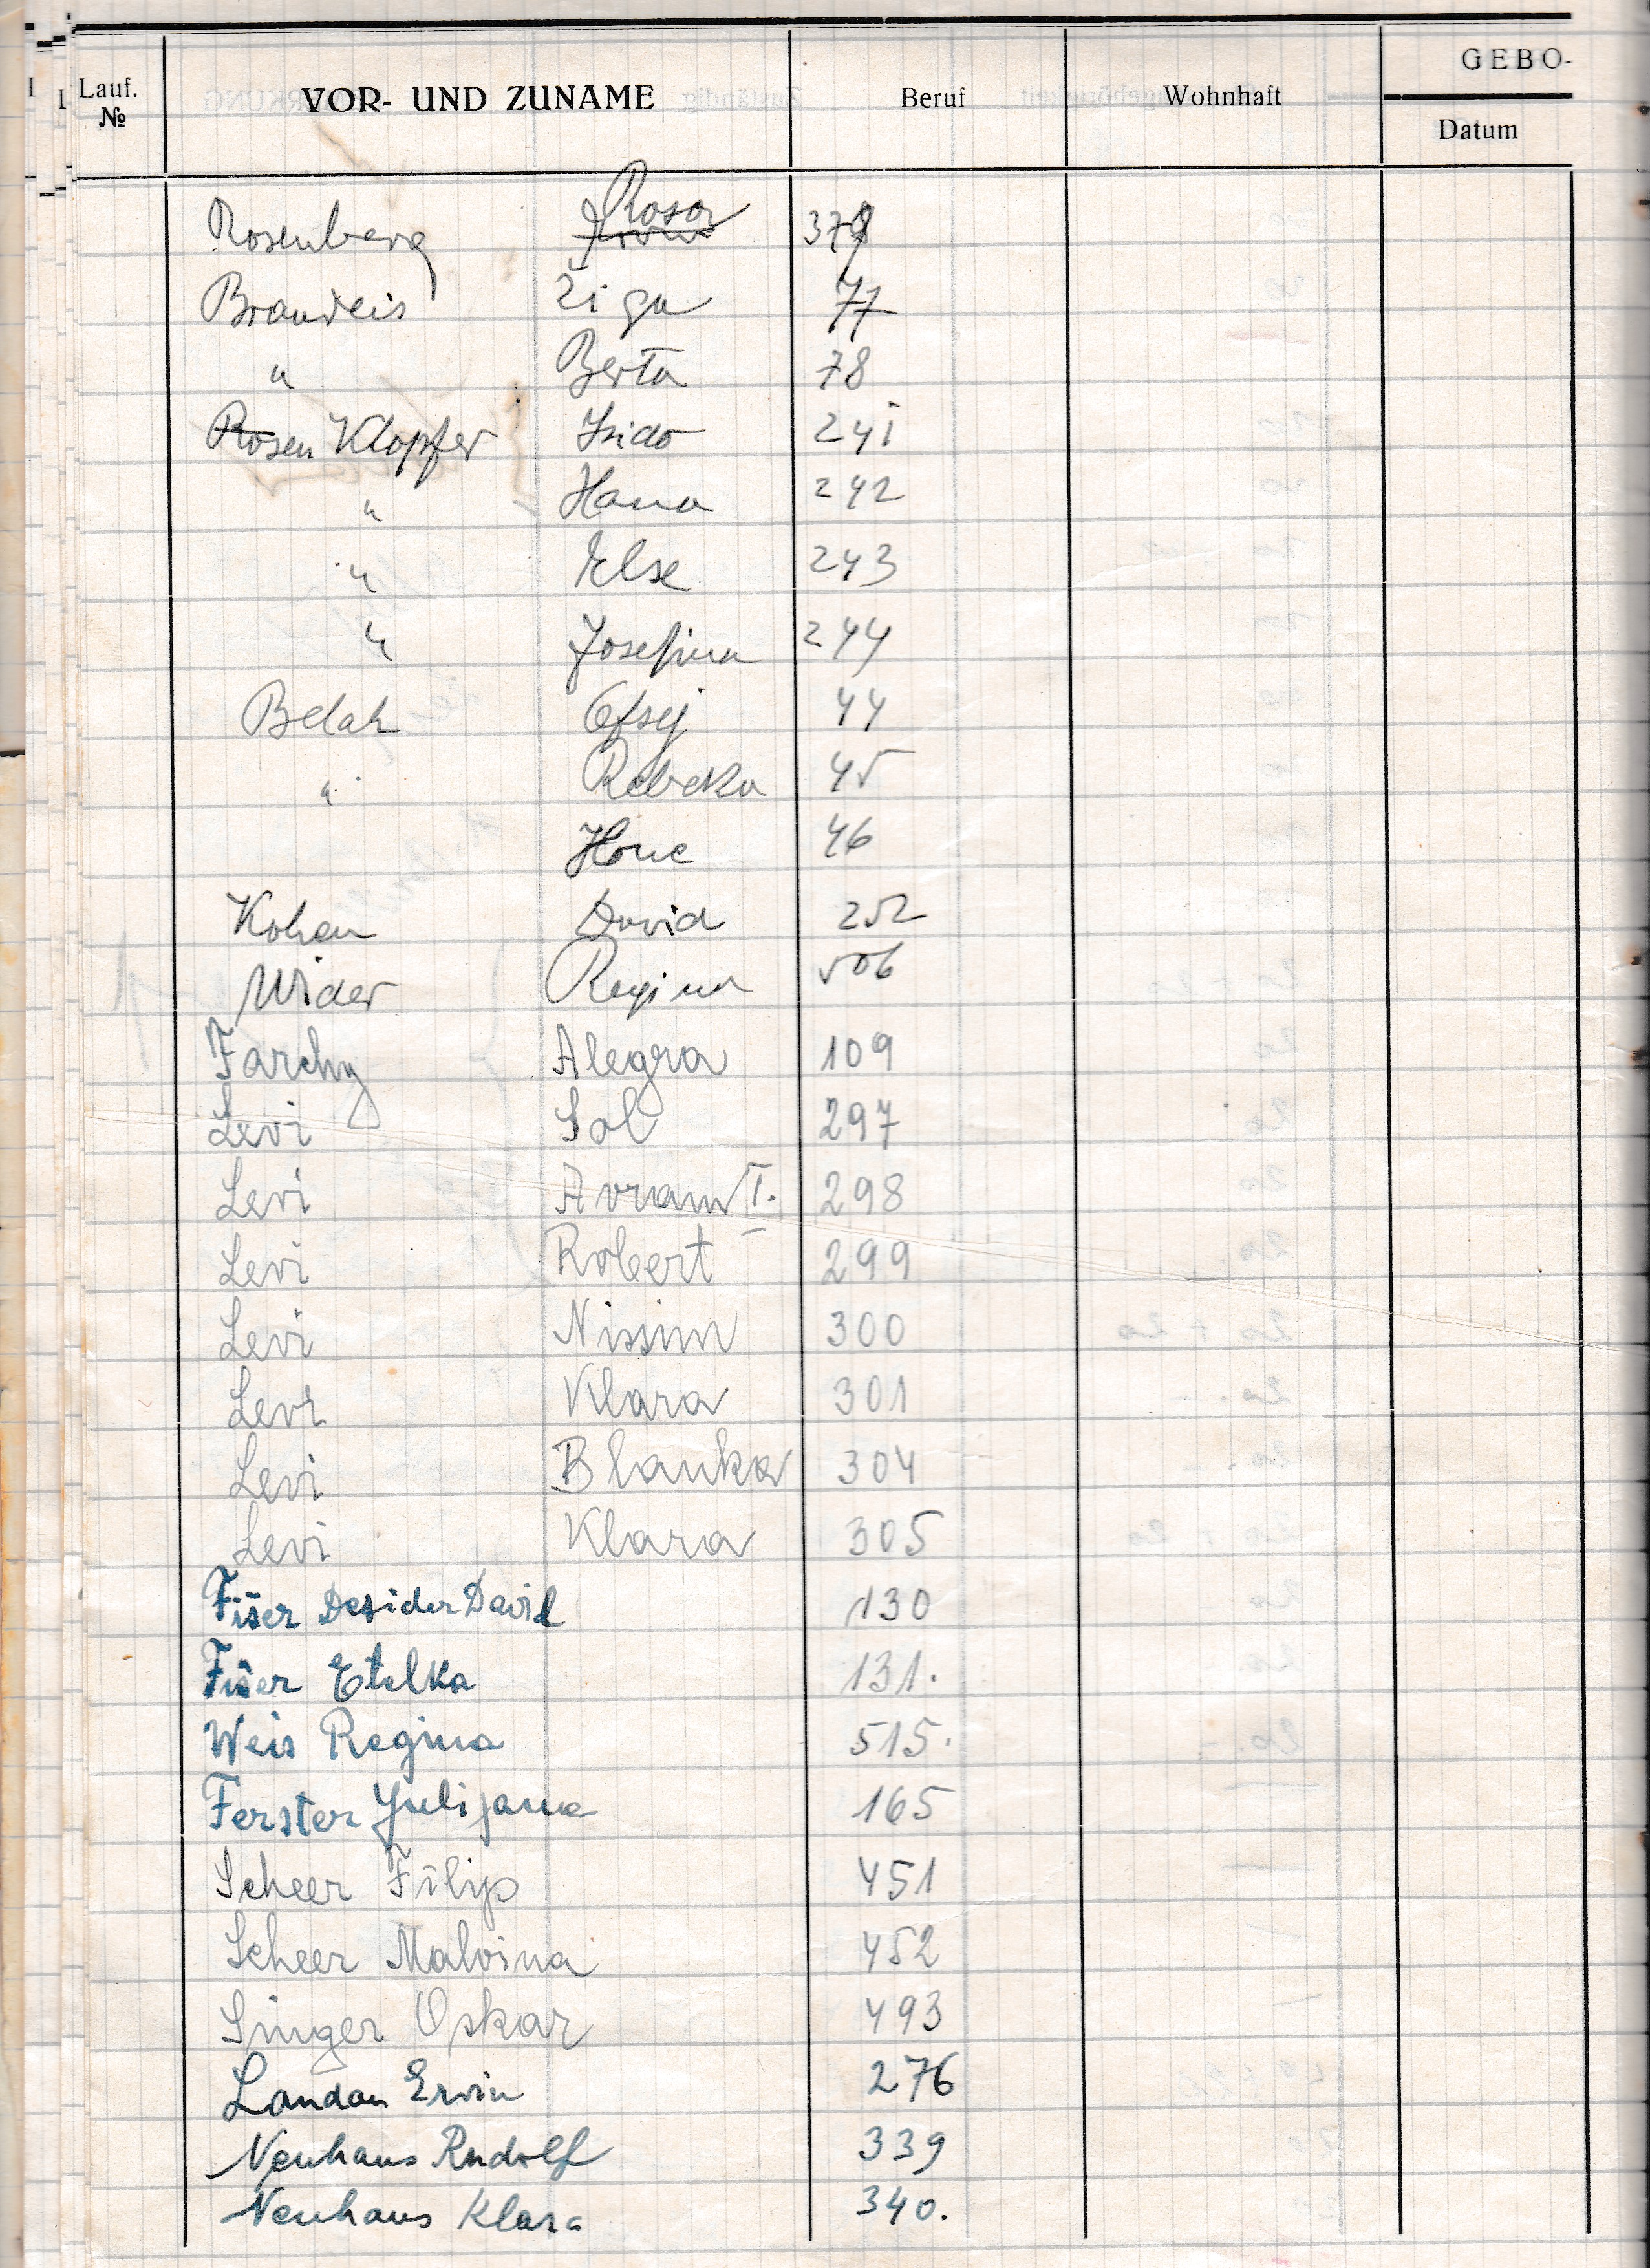 Lauf. № VOR- UND ZUNAME Beruf Wohnhaft GEBO-
Datum
Rosenberg Rosa 379
Brandeis Žiga 77
" Berta 78
Rosen Klopfer Isido 241
" Hana 242
" Else 243
" Josefina 244
Belah 44
" Rebeka 45
46
Kohen David 252
Wider Regina 506
Farchy Alegra 109
Levi Sol 297
Levi Avram I. 298
Levi Robert 299
Levi Nissim 300
Levi Klara 301
Levi Blanka 304
Levi Klara 305
Fišer Desider David 130
Fišer Etelka 131.
Weis Regina 515.
Ferster Julijana 165
Scheer Filip 451
Scheer Malvina 452
Singer Oskar 493
Landau Ervin 276
Neuhaus Rudolf 339
Neuhaus Klara 340.